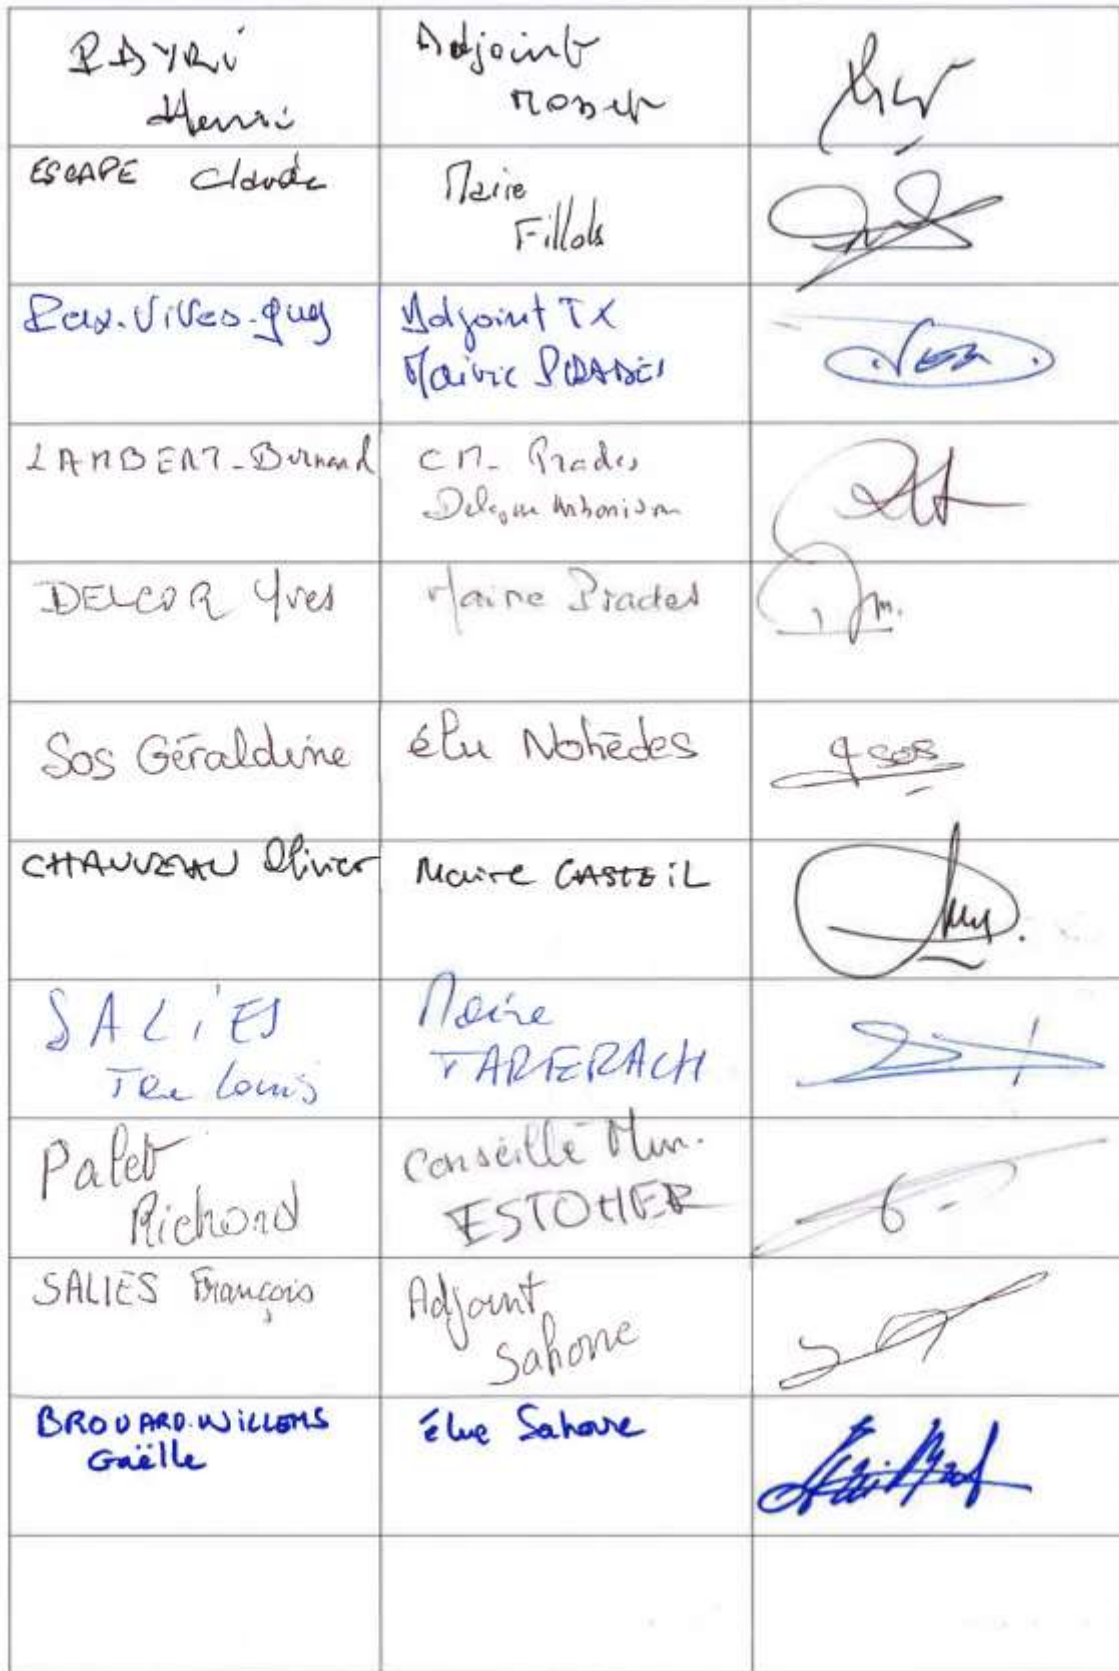 PAYRÉ Adjoint
Henri Mosset
ESCAPE Claude Maire
Fillols
Pux.Vives.Guy Adjoint TX
Mairie PRADES
LAMBERT-Bernard CM- Prades
Delegue Urbanism
DELCOR Yves Maire Prades
Sos Géraldine élu Nohèdes
CHAUVEAU Olivier Maire CASTEIL
SALIES Maire
Jean Louis TARERACH
Palet Conseillé Mun.
Richard ESTOHER
SALIES François Adjoint
Sahorre
BROUARD.WILLEMS élue Sahorre
Gaëlle